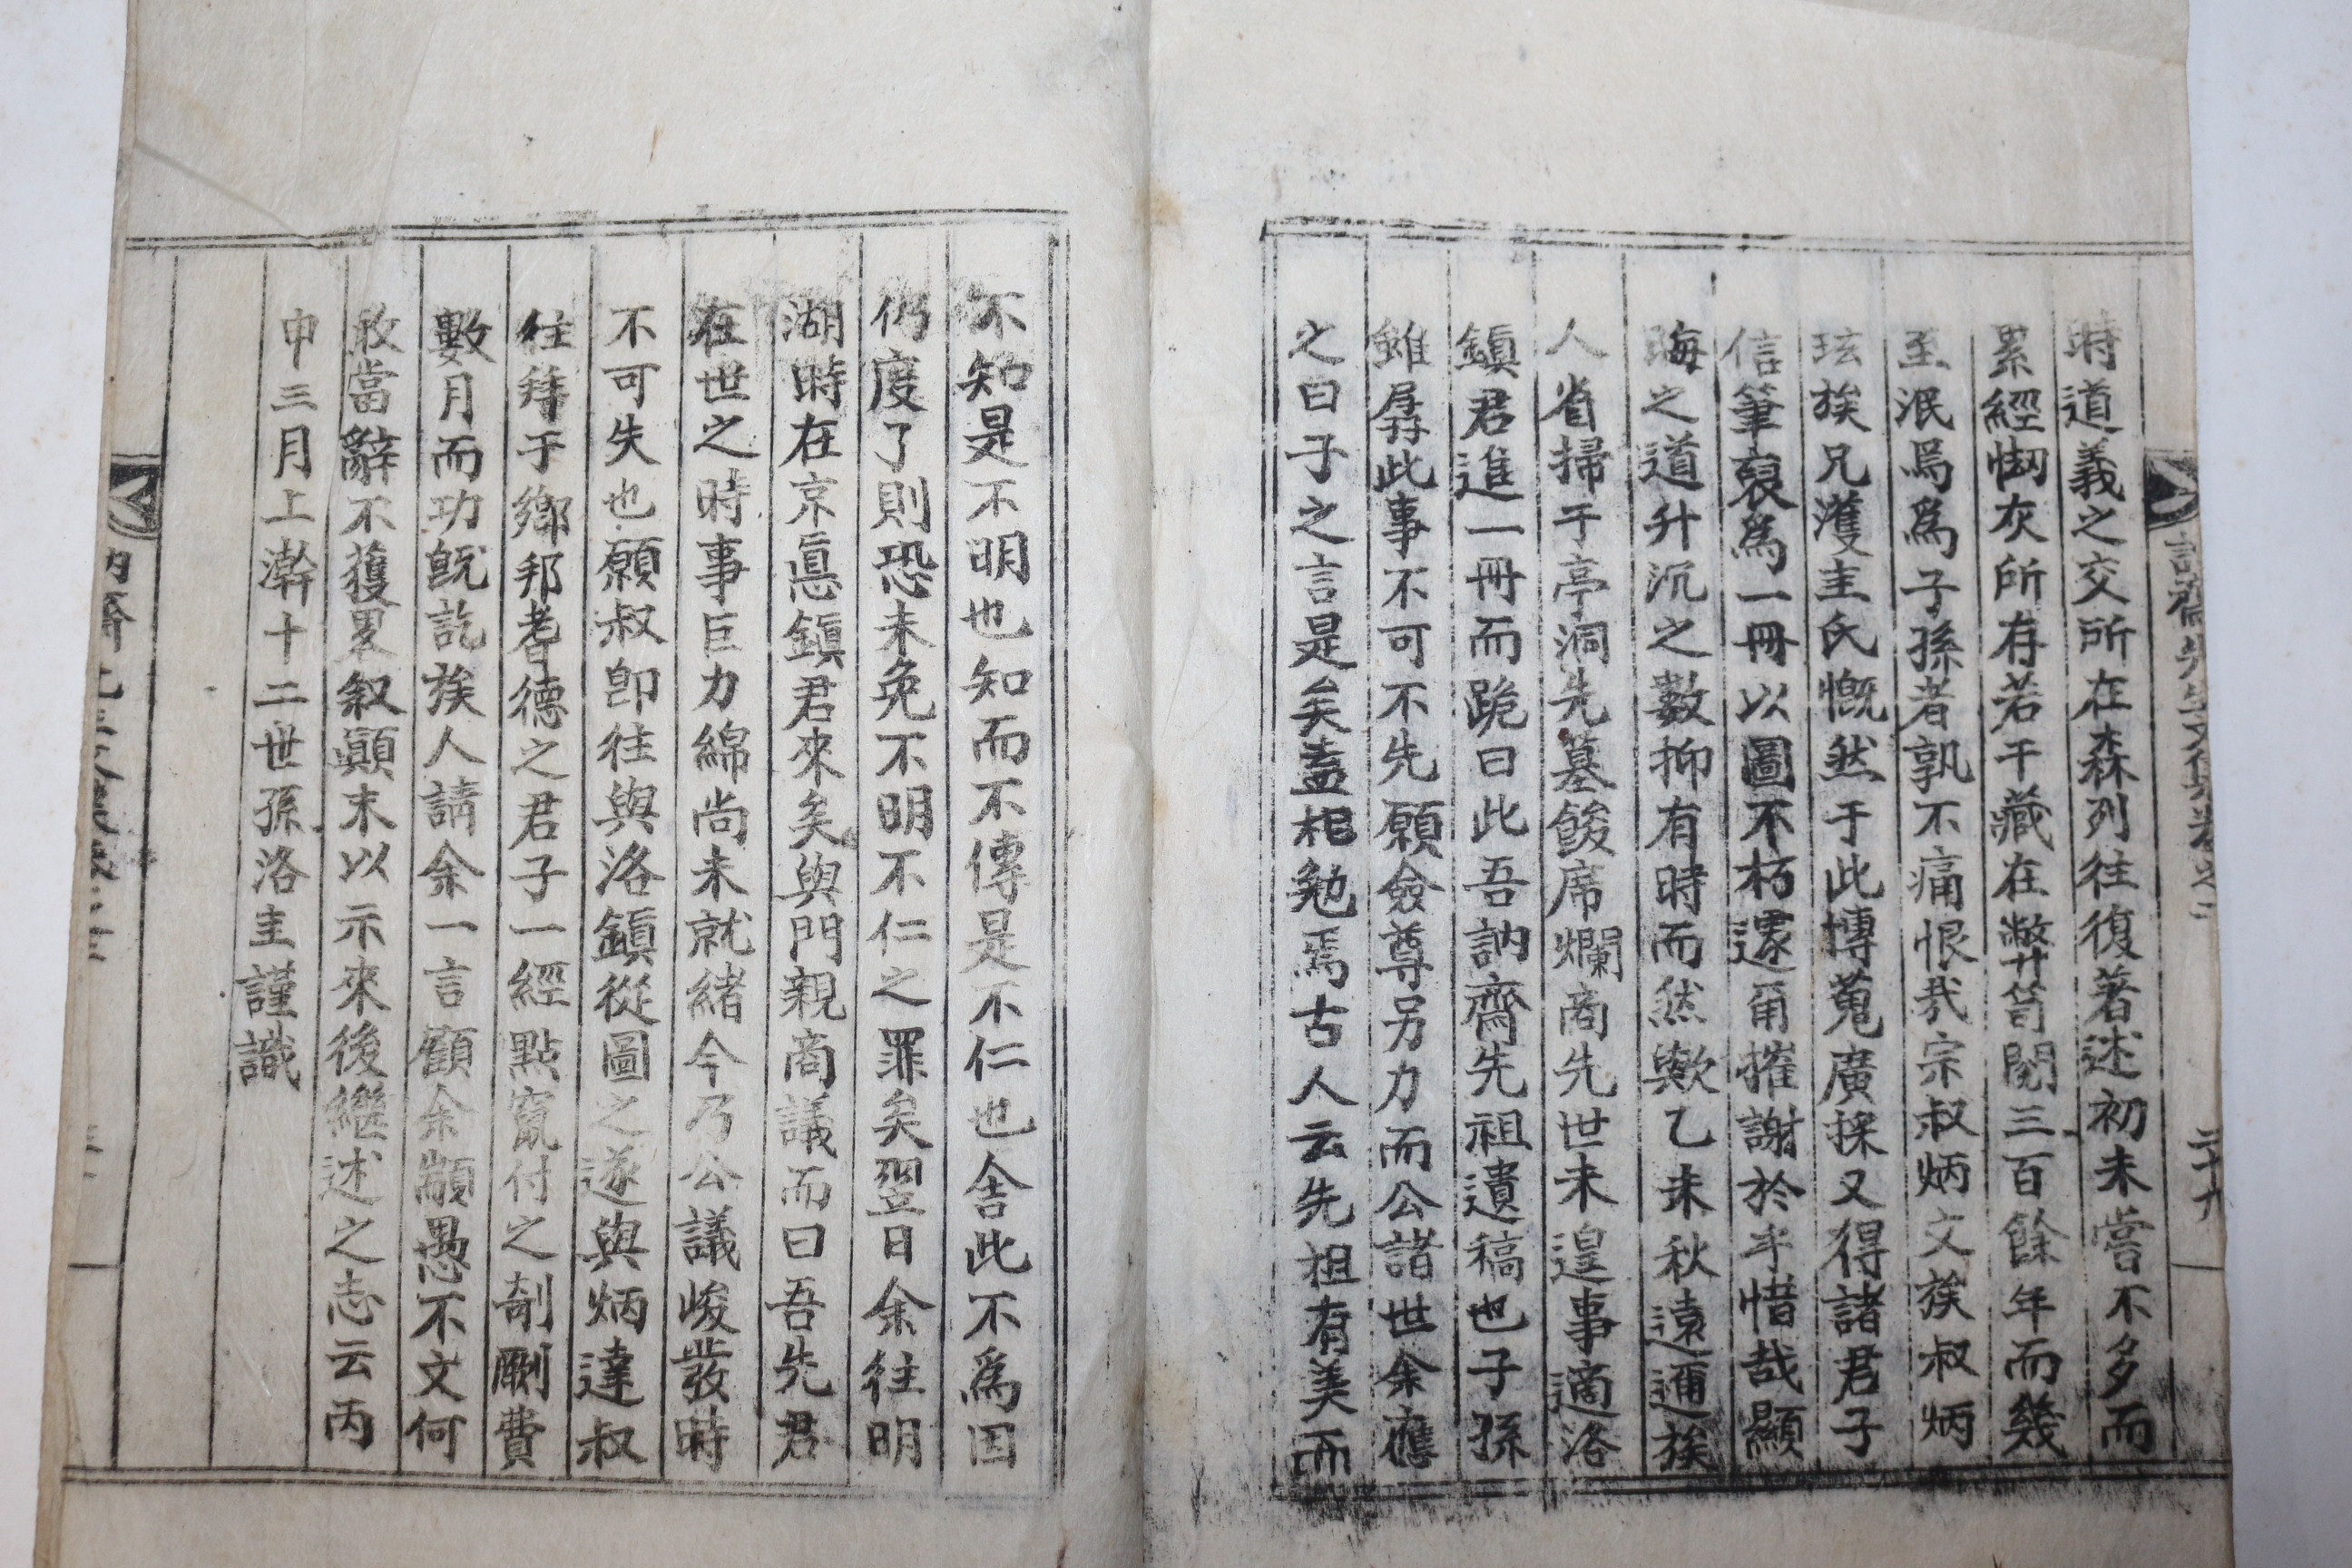 時道義之交所在森列往復著述初未嘗不多而
累經刼灰所存若干藏在弊笥閱三百餘年而幾
至泯焉爲子孫者孰不痛恨哉宗叔炳文族叔炳
玹族兄濩圭氏慨然于此博蒐廣採又得諸君子
信筆裒爲一冊以圖不朽遽爾摧謝於乎惜哉顯
晦之道升沉之數抑有時而然歟乙未秋遠邇族
人省掃于亭洞先墓餕席爛商先世未遑事適洛
鎭君進一冊而跪曰此吾訥齋先祖遺稿也子孫
雖孱此事不可不先願僉尊另力而公諸世余應
之曰子之言是矣盍相勉焉古人云先祖有美而
訥齋先生文集卷之二
二十九
不知是不明也知而不傳是不仁也舍此不爲因
仍度了則恐未免不明不仁之罪矣翌日余往明
湖時在京悳鎭君來矣與門親商議而曰吾先君
在世之時事巨力綿尚未就緒今乃公議峻發時
不可失也願叔卽往與洛鎭從圖之遂與炳達叔
往拜于鄉邦耆德之君子一經點竄付之剞劂費
數月而功旣訖族人請余一言顧余顓愚不文何
敢當辭不獲畧叙顚末以示來後繼述之志云丙
申三月上澣十二世孫洛圭謹識